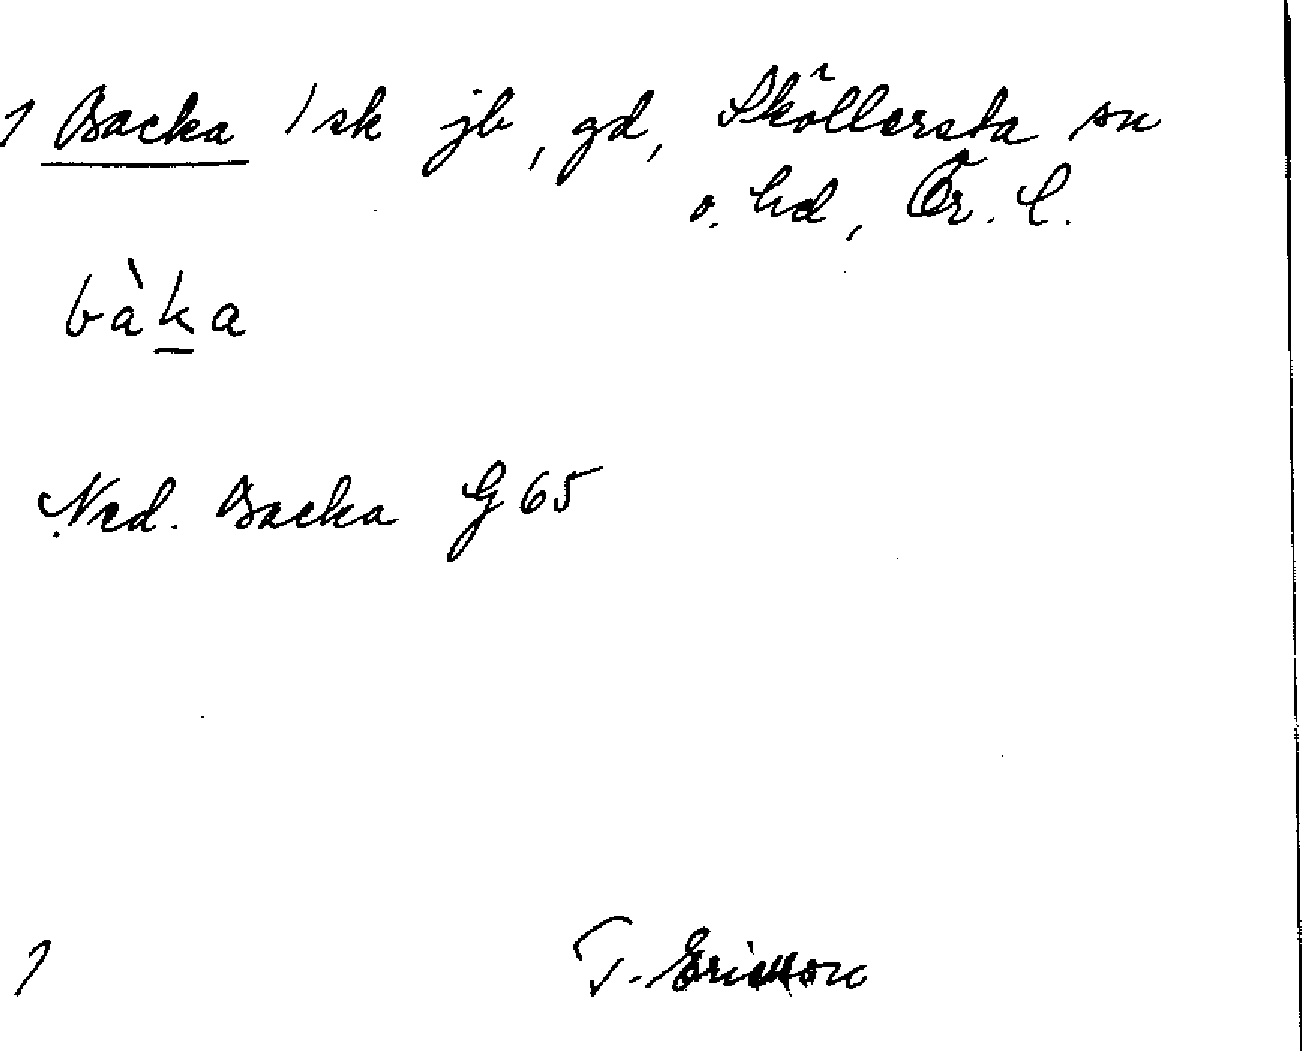 1 Backa 1 sk jb, gd, Sköllersta sn
o. hd, Ör. l.
bàka
Ned. Backa G 65
1 T. Ericsson